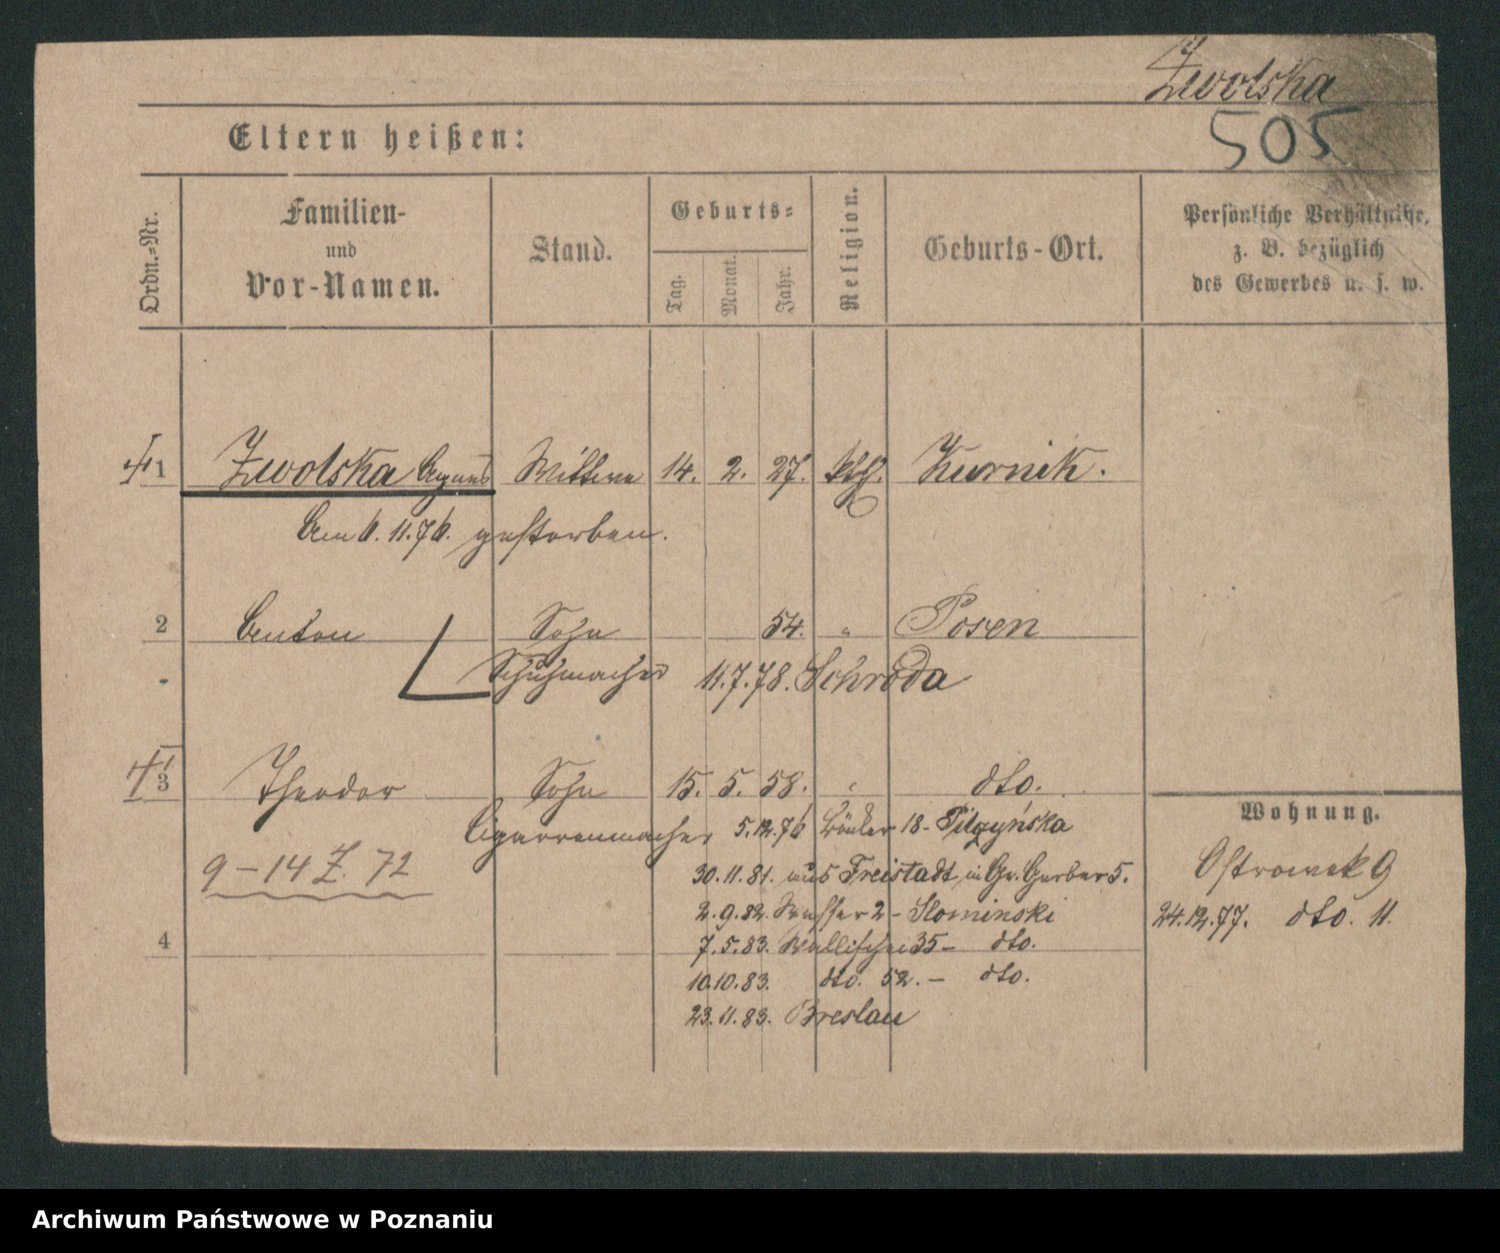 Zwolska
505
Eltern heißen:
Ordn.-Nr.
Familien-
und
Vor-Namen.
Stand.
Geburts-
Tag.
Monat.
Jahr.
Religion.
Geburts-Ort.
Persönliche Verhältniße,
z. B. bezüglich
des Gewerbes u. s. w.
1 Zwolska Agnes Wittwe 14. 2. 27. kth. Kurnik.
Am 6. 11. 76. gestorben.
2 Anton Sohn 54. " Posen
Schuhmacher 11.7.78. Schroda
3 Theodor Sohn 15. 5. 58. " dto.
Cigarrenmacher 5.12.76 18-
9-14 Z. 72
30.11.81. aus Freistadt in Gr. Gerber 5.
2.9.82. Wasser 2- Slominski
7.5.83. Wallischei 35- dto.
4
10.10.83. dto. 52.- dto.
23.11.83. Breslau
Wohnung.
Ostrowek 9
24.12.77. dto. 11.
Archiwum Państwowe w Poznaniu